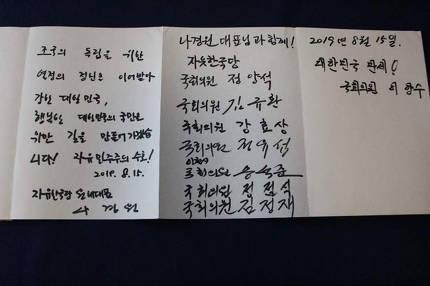 조국의 독립을 위한
열정의 정신을 이어받아
강한 대한민국,
행복한 대한민국의 국민을
위한 길을 만들어가겠습
니다! 자유민주주의 수호!
2019. 8. 15.
자유한국당 원내대표
나경원
나경원 대표님과 함께!
자유한국당
국회의원 정양석
국회의원 김규환
국회의원 강효상
국회의원 정유섭
국회의원
국회의원 정점식
국회의원 김정재
2019년 8월 15일.
대한민국 만세!
국회의원 이만수